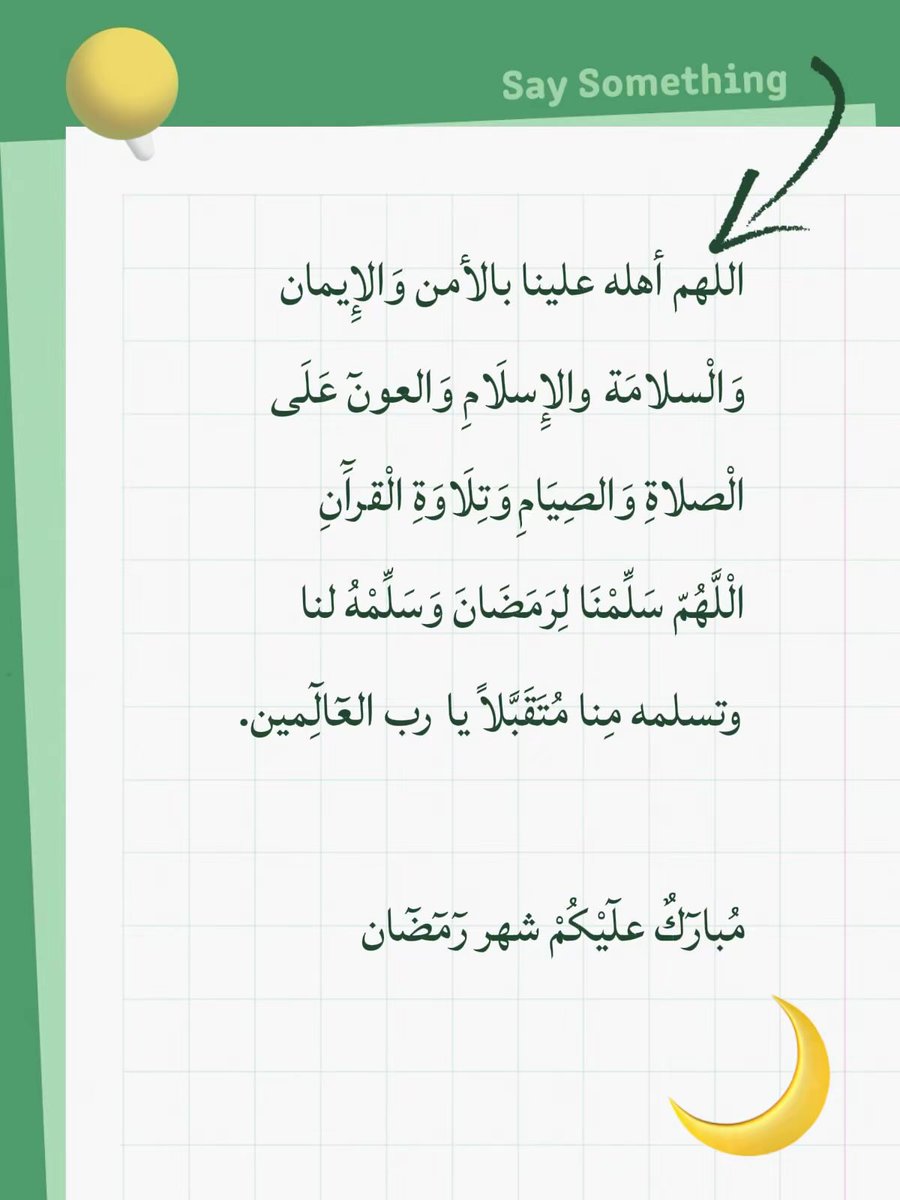 Say Something
اللهم أهله علينا بالأمن وَالإِيمان
وَالْسلامَة والإِسلَامِ وَالعونَٓ عَلَى
الْصلاةِ وَالصِيَامِ وَتِلَاوَةِ الْقرآَٓنِ
الْلَّهُمّ سَلِّمْنَا لِرَمَضَانَ وَسَلِّمْهُ لنا
وتسلمه مِنا مُتَقَبَّلاً يا رب العَٓالَٓمِين.
مُبارَٓكٌ علَٓيْكُمْ شهر رَٓمَٓضَٓان